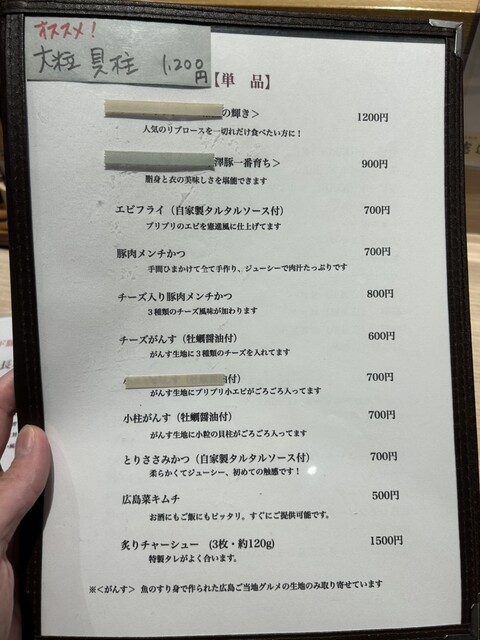 オススメ!
大粒 貝柱 1,200円
【単 品】
の輝き> 1200円
人気のリブロースを一切れだけ食べたい方に!
澤豚一番育ち> 900円
脂身と衣の美味しさを堪能できます
エビフライ(自家製タルタルソース付) 700円
プリプリのエビを憲進風に仕上げてます
豚肉メンチかつ 700円
手間ひまかけて全て手作り、ジューシーで肉汁たっぷりです
チーズ入り豚肉メンチかつ 800円
3種類のチーズ風味が加わります
チーズがんす(牡蠣醤油付) 600円
がんす生地に3種類のチーズを入れてます
付) 700円
がんす生地にプリプリ小エビがごろごろ入ってます
小柱がんす(牡蠣醤油付) 700円
がんす生地に小粒の貝柱がごろごろ入ってます
とりささみかつ(自家製タルタルソース付) 700円
柔らかくてジューシー、初めての触感です!
広島菜キムチ 500円
お酒にもご飯にもピッタリ。すぐにご提供可能です。
炙りチャーシュー (3枚・約120g) 1500円
特製タレがよく合います。
※<がんす> 魚のすり身で作られた広島ご当地グルメの生地のみ取り寄せています